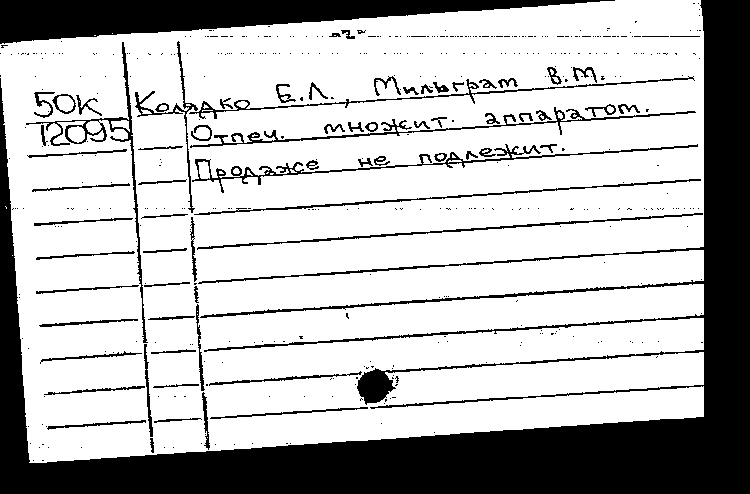 -2-
50К Колядко Е.Л., Мильграт В.М.
12095 Отпеч. множит. аппаратом.
Продаже не подлежит.